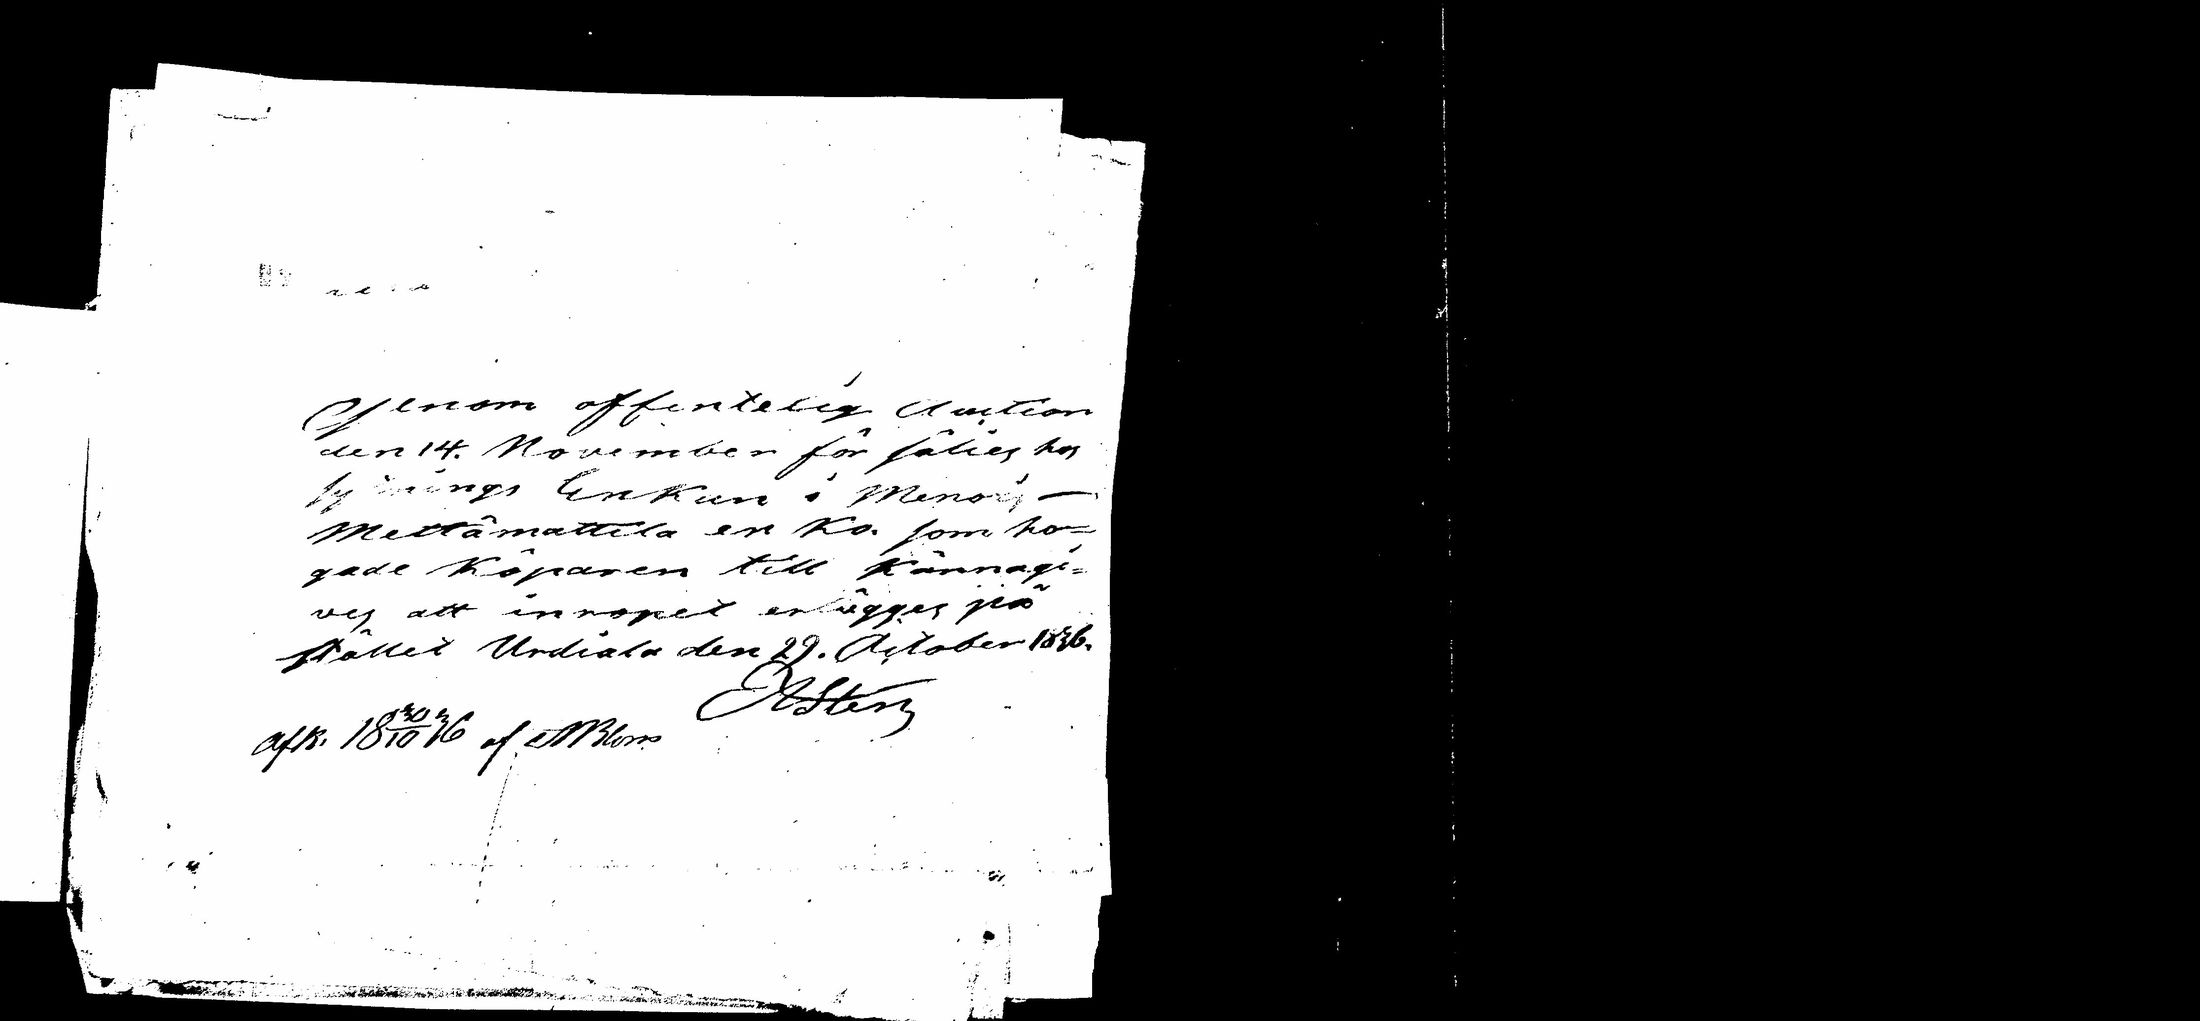 Genom offentelig Auction
den 14. November för säljes hos
sytnings Enkan i Menois
Mettämattila en Ko. som ho-
gade Köparen till Kännagi-
ves att inropet erlägges på
stället Urdiala den 29. October 1836.
afk. 18 30/10 36 af